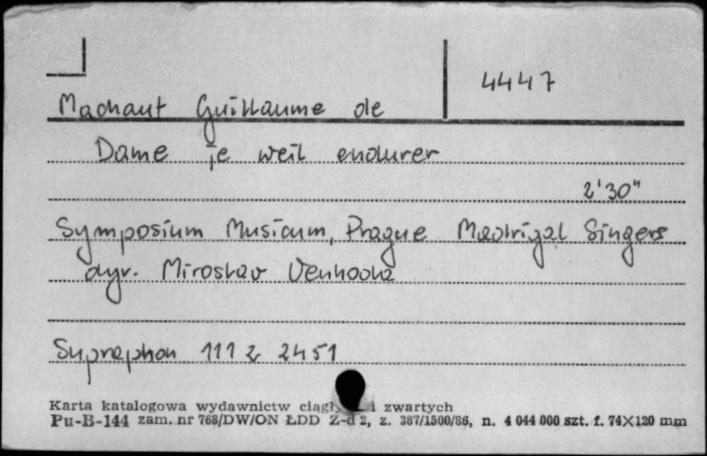 4447
Machaut Guillaume de
Dame je weil endurer
2'30"
Symposium Musicum, Prague Madrigal Singers
dyr. Miroslav Venhoda
Supraphon 111 2 2451
Karta katalogowa wydawnictw ciągł i zwartych
Pu-B-144 zam. nr 768/DW/ON ŁDD Z-d 2, z. 387/1500/86, n. 4 044 000 szt. f. 74X120 mm